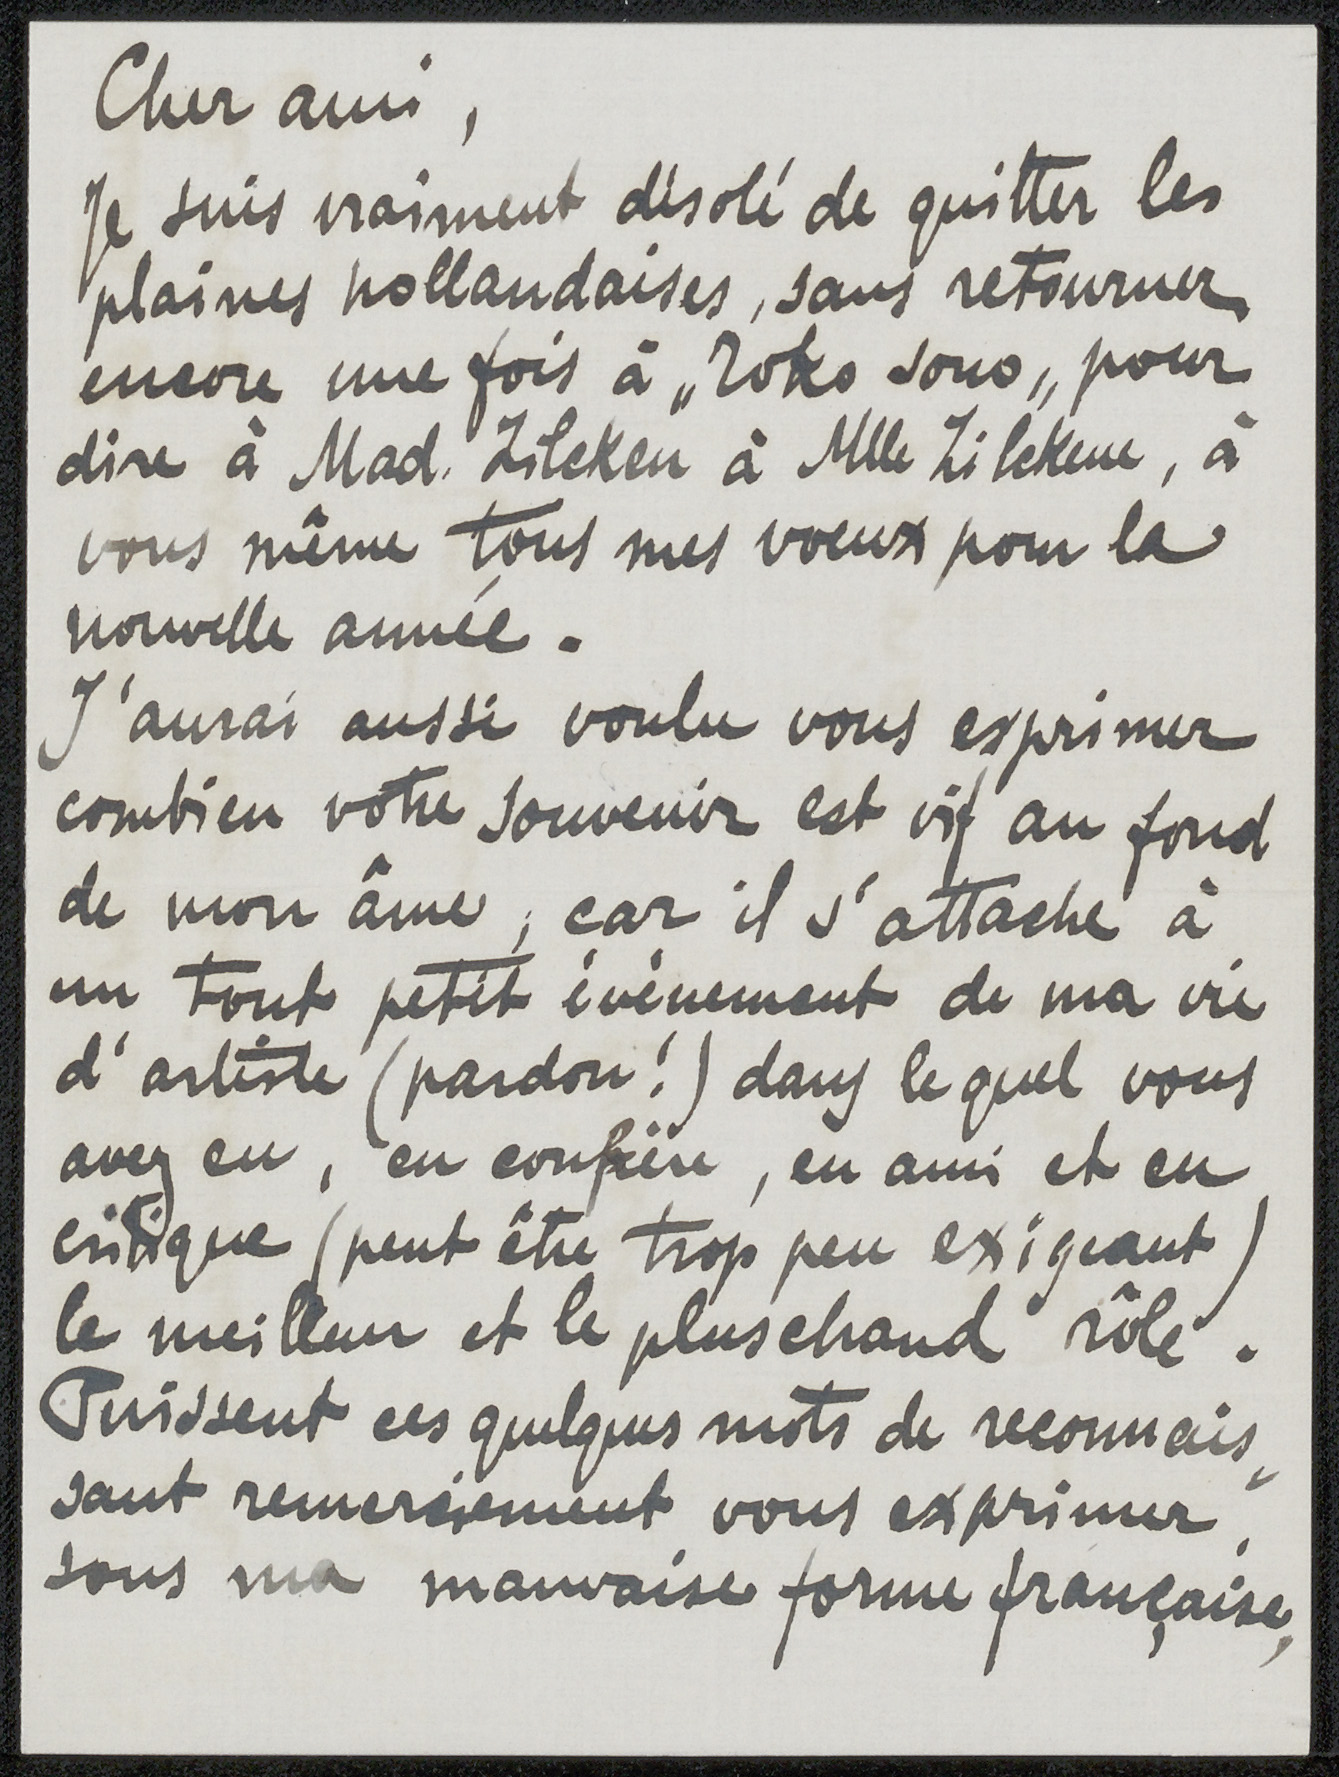 Cher ami,
Je suis vraiment désolé de quitter les
plaines hollandaises, sans retourner
encore une fois à „Roko sono„ pour
dire à Mad. Zilcken à Mlle Zilckene, à
vous même tous mes voeux pour la
nouvelle année.
J'aurai aussi voulu vous exprimer
combien votre souvenir est vif au fond
de mon âme, car il s'attache à
un tout petit évènement de ma vie
d'artiste (pardon!) dans le quel vous
avez eu, en confrère, en ami et en
critique (peut être trop peu exigeant)
le meilleur et le plus chaud rôle.
Puissent ces quelques mots de reconnais„
sant remerciement vous exprimer,
sous ma mauvaise forme française,